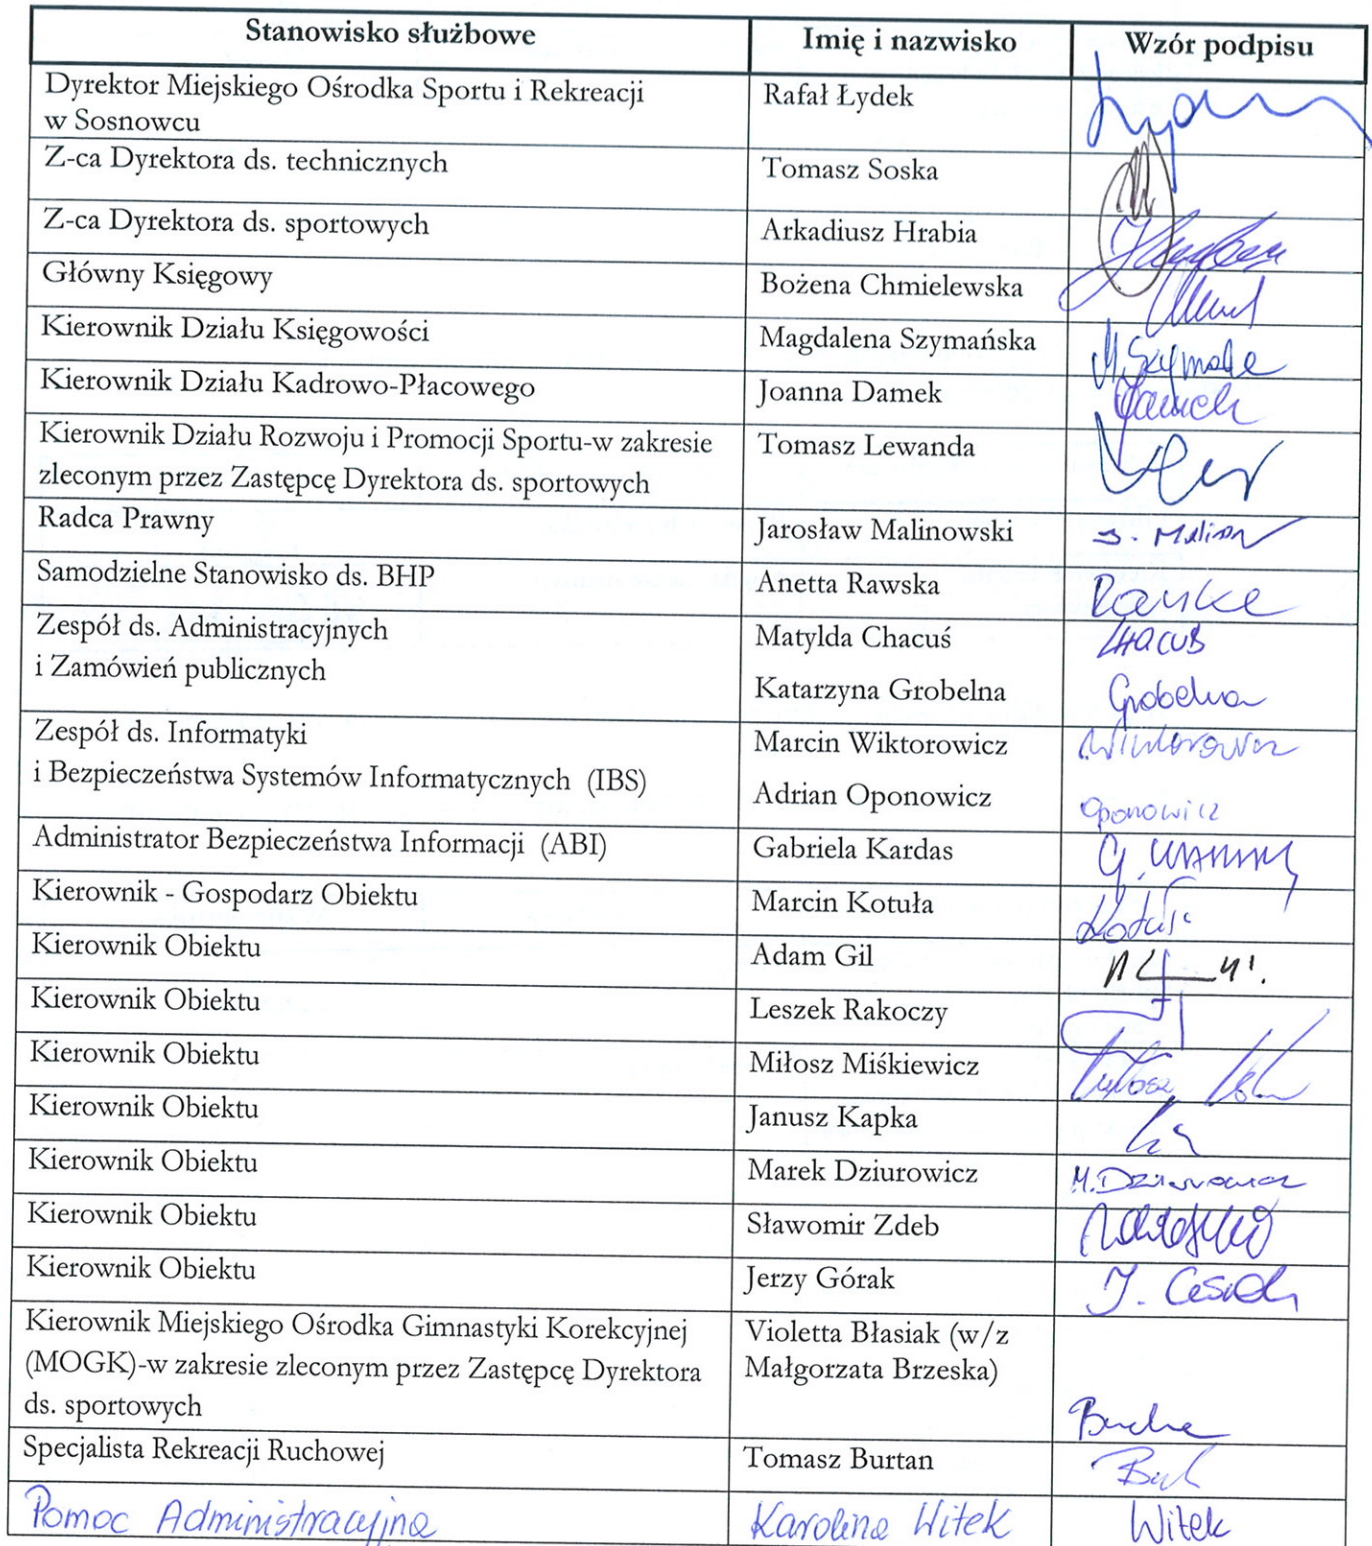 Stanowisko służbowe Imię i nazwisko Wzór podpisu
Dyrektor Miejskiego Ośrodka Sportu i Rekreacji Rafał Łydek
w Sosnowcu
Z-ca Dyrektora ds. technicznych Tomasz Soska
Z-ca Dyrektora ds. sportowych Arkadiusz Hrabia
Główny Księgowy Bożena Chmielewska
Kierownik Działu Księgowości Magdalena Szymańska
Kierownik Działu Kadrowo-Płacowego Joanna Damek
Kierownik Działu Rozwoju i Promocji Sportu-w zakresie Tomasz Lewanda
zleconym przez Zastępcę Dyrektora ds. sportowych
Radca Prawny Jarosław Malinowski
Samodzielne Stanowisko ds. BHP Anetta Rawska
Zespół ds. Administracyjnych Matylda Chacuś
i Zamówień publicznych
Katarzyna Grobelna Grobelna
Zespół ds. Informatyki Marcin Wiktorowicz
i Bezpieczeństwa Systemów Informatycznych (IBS)
Adrian Oponowicz Oponowicz
Administrator Bezpieczeństwa Informacji (ABI) Gabriela Kardas
Kierownik - Gospodarz Obiektu Marcin Kotuła
Kierownik Obiektu Adam Gil
Kierownik Obiektu Leszek Rakoczy
Kierownik Obiektu Miłosz Miśkiewicz
Kierownik Obiektu Janusz Kapka
Kierownik Obiektu Marek Dziurowicz
Kierownik Obiektu Sławomir Zdeb
Kierownik Obiektu Jerzy Górak
Kierownik Miejskiego Ośrodka Gimnastyki Korekcyjnej Violetta Błasiak (w/z
(MOGK)-w zakresie zleconym przez Zastępcę Dyrektora Małgorzata Brzeska)
ds. sportowych
Specjalista Rekreacji Ruchowej Tomasz Burtan
Pomoc Administracyjna Karolina Witek Witek